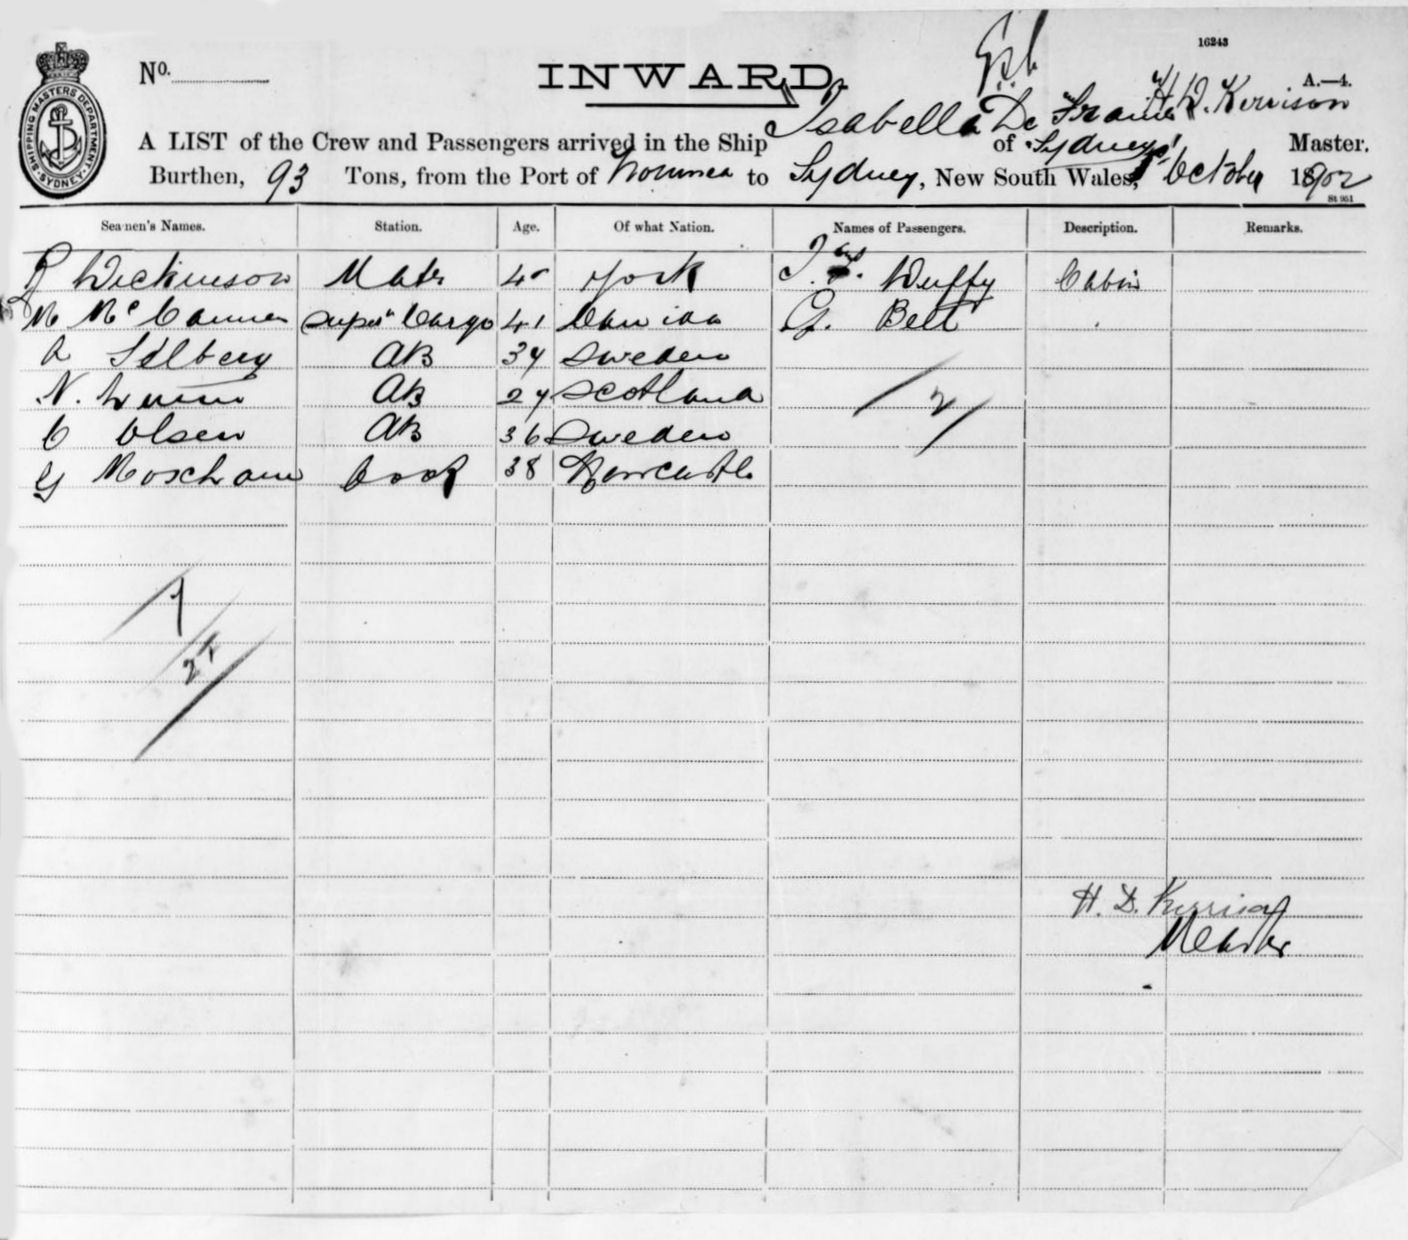 16243
No.
INWARD.
A.—4.
SHIPPING MASTERS DEPARTMENT SYDNEY
A LIST of the Crew and Passengers arrived in the Ship Isabella De Fraine of Sydney H. D. Kerrison Master.
Burthen, 93 Tons, from the Port of Noumea to Sydney, New South Wales, 1st October 1902
St 951
Seamen's Names. Station. Age. Of what Nation. Names of Passengers. Description. Remarks.
R Dickinson Mate York Duffy Cabin
M McCannen Super Cargo 41 G. Bell
Selberg AB 34 Sweden
N. AB 24 Scotland 2
C Olsen AB 36 Sweden
G Moscham Cook 38 Newcastle
7
27
H. D. Kerrison
Master